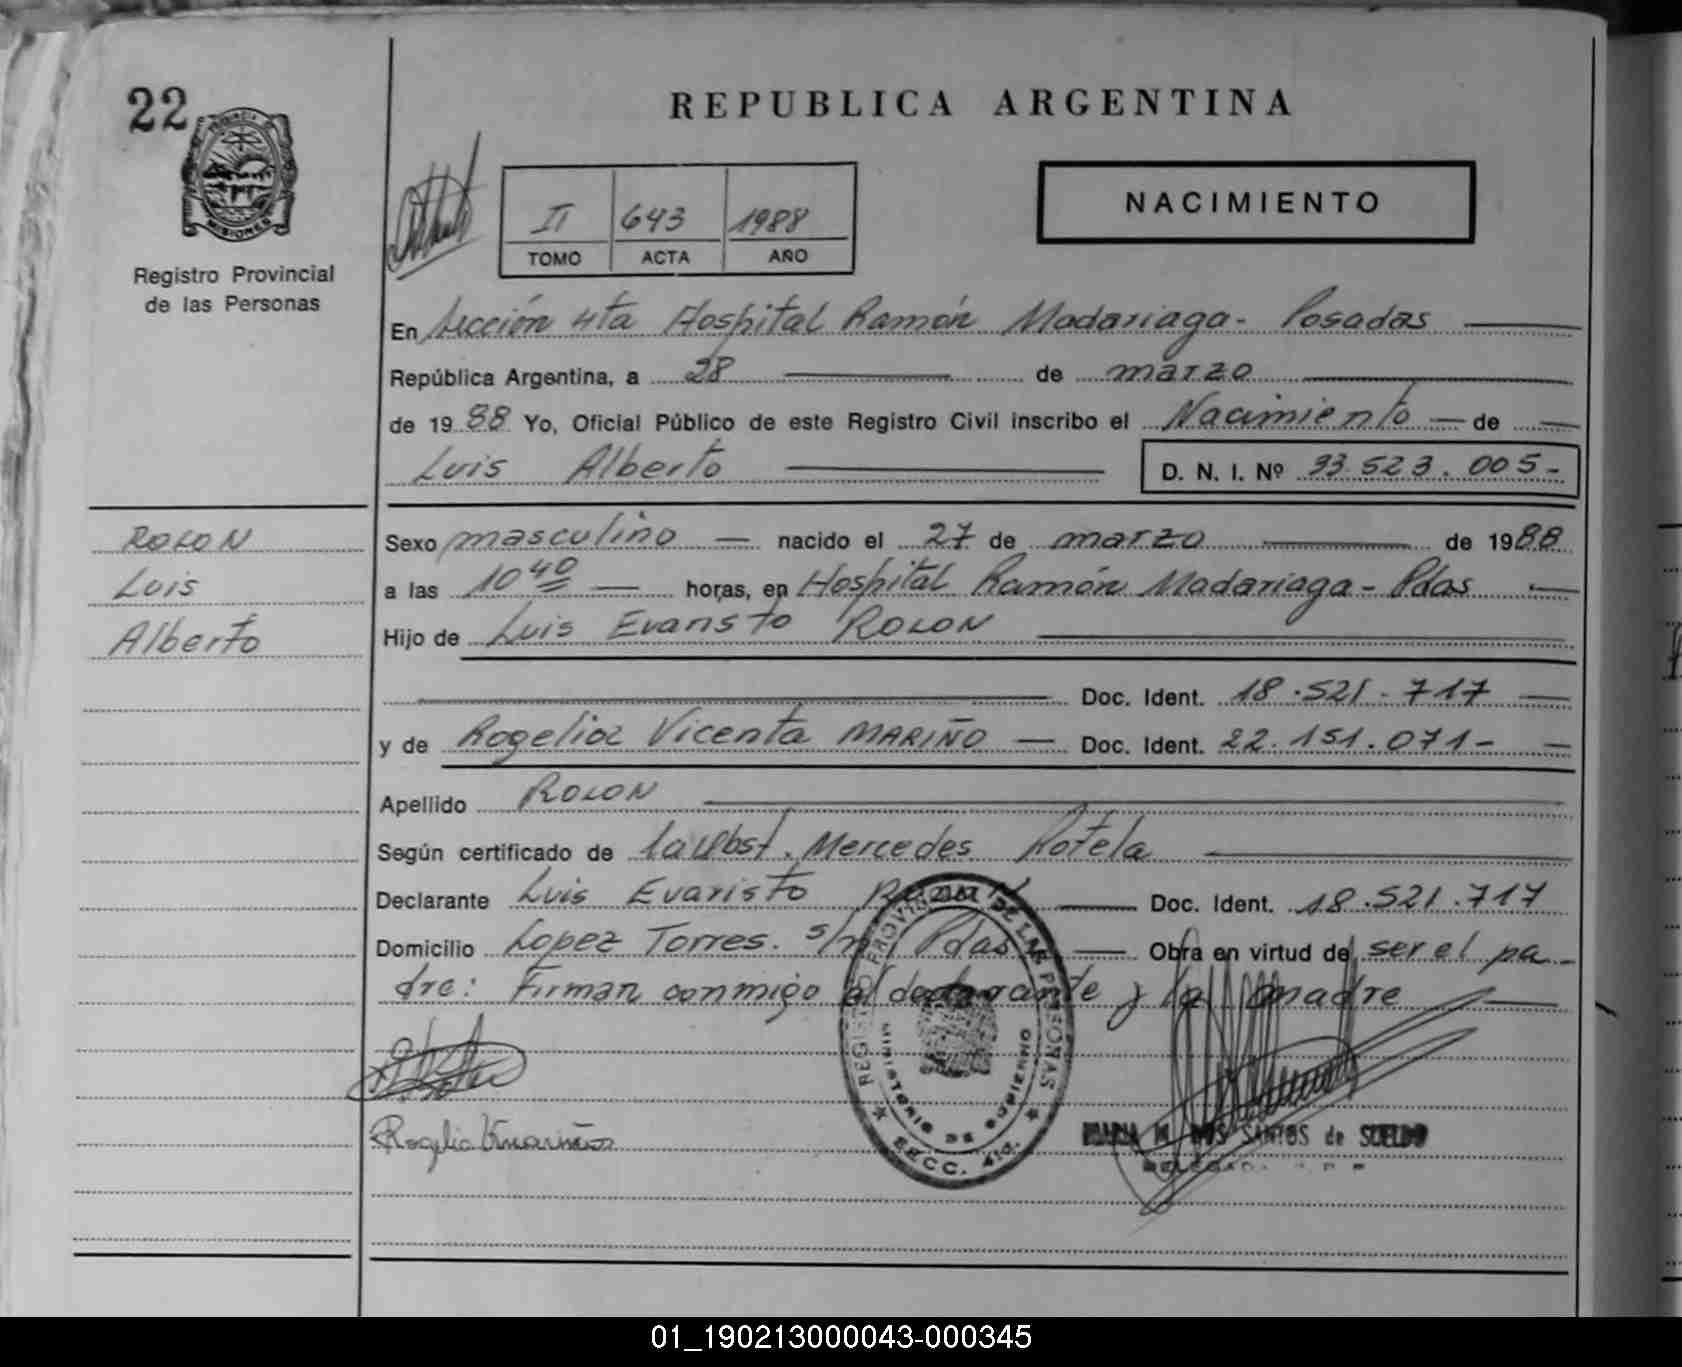 22
REPUBLICA ARGENTINA
PROVINCIA DE
MISIONES
Registro Provincial
de las Personas
II 643 1988
TOMO ACTA AÑO
NACIMIENTO
En Sección 4ta Hospital Ramón Madariaga - Posadas
República Argentina, a 28 de marzo
de 1988 Yo, Oficial Público de este Registro Civil inscribo el Nacimiento de
Luis Alberto D. N. I. Nº 33.523.005-
ROLON
Luis
Alberto
Sexo masculino nacido el 27 de marzo de 1988
a las 10 40 horas, en Hospital Ramón Madariaga - Pdas
Hijo de Luis Evaristo ROLON
Doc. Ident. 18.521.717
y de Rogelia Vicenta MARIÑO Doc. Ident. 22.151.071-
Apellido ROLON
Según certificado de la Obst. Mercedes Rotela
Declarante Luis Evaristo Rolon Doc. Ident. 18.521.717
Domicilio Lopez Torres. s/n Pdas Obra en virtud de ser el pa-
dre: Firman conmigo el declarante y la madre
REGISTRO PROVINCIAL DE LAS PERSONAS
MINISTERIO DE GOBIERNO
MARIA M. DOS SANTOS de SUELDO
01_190213000043-000345